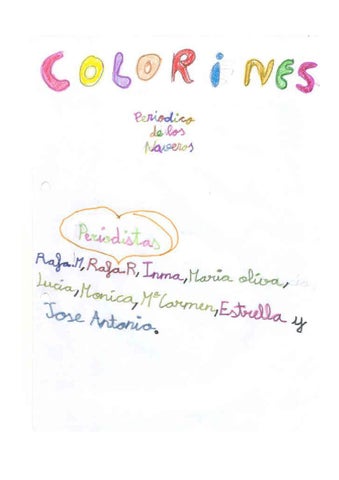 COLORINES
Periodico
de los
Naveros
Periodistas
Rafa.M, Rafa.R, Inma, Maria oliva,
Lucia, Monica, Mª Carmen, Estrella y
Jose Antonio.